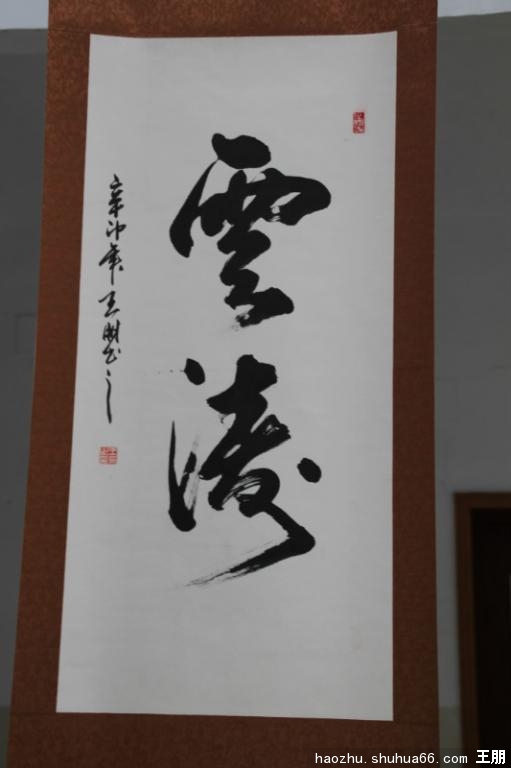 雲涛
辛卯年王朋书之
haozhu.shuhua66.com 王朋